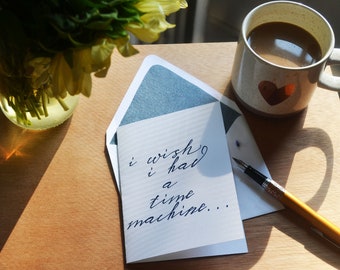 i wish
i had
a
time
machine...